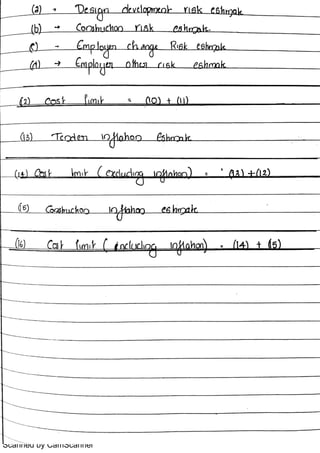 (a) → Design development risk estimate
(b) → Construction risk estimate
(c) → Employer change Risk estimate
(d) → Employer other risk estimate
(12) Cost limit = (10) + (11)
(13) Tender inflation Estimate
(14) Cost limit (excluding inflation) = (12) + (12)
(15) Construction inflation estimate
(16) Cost limit (including inflation) = (14) + (15)
Scanned by CamScanner